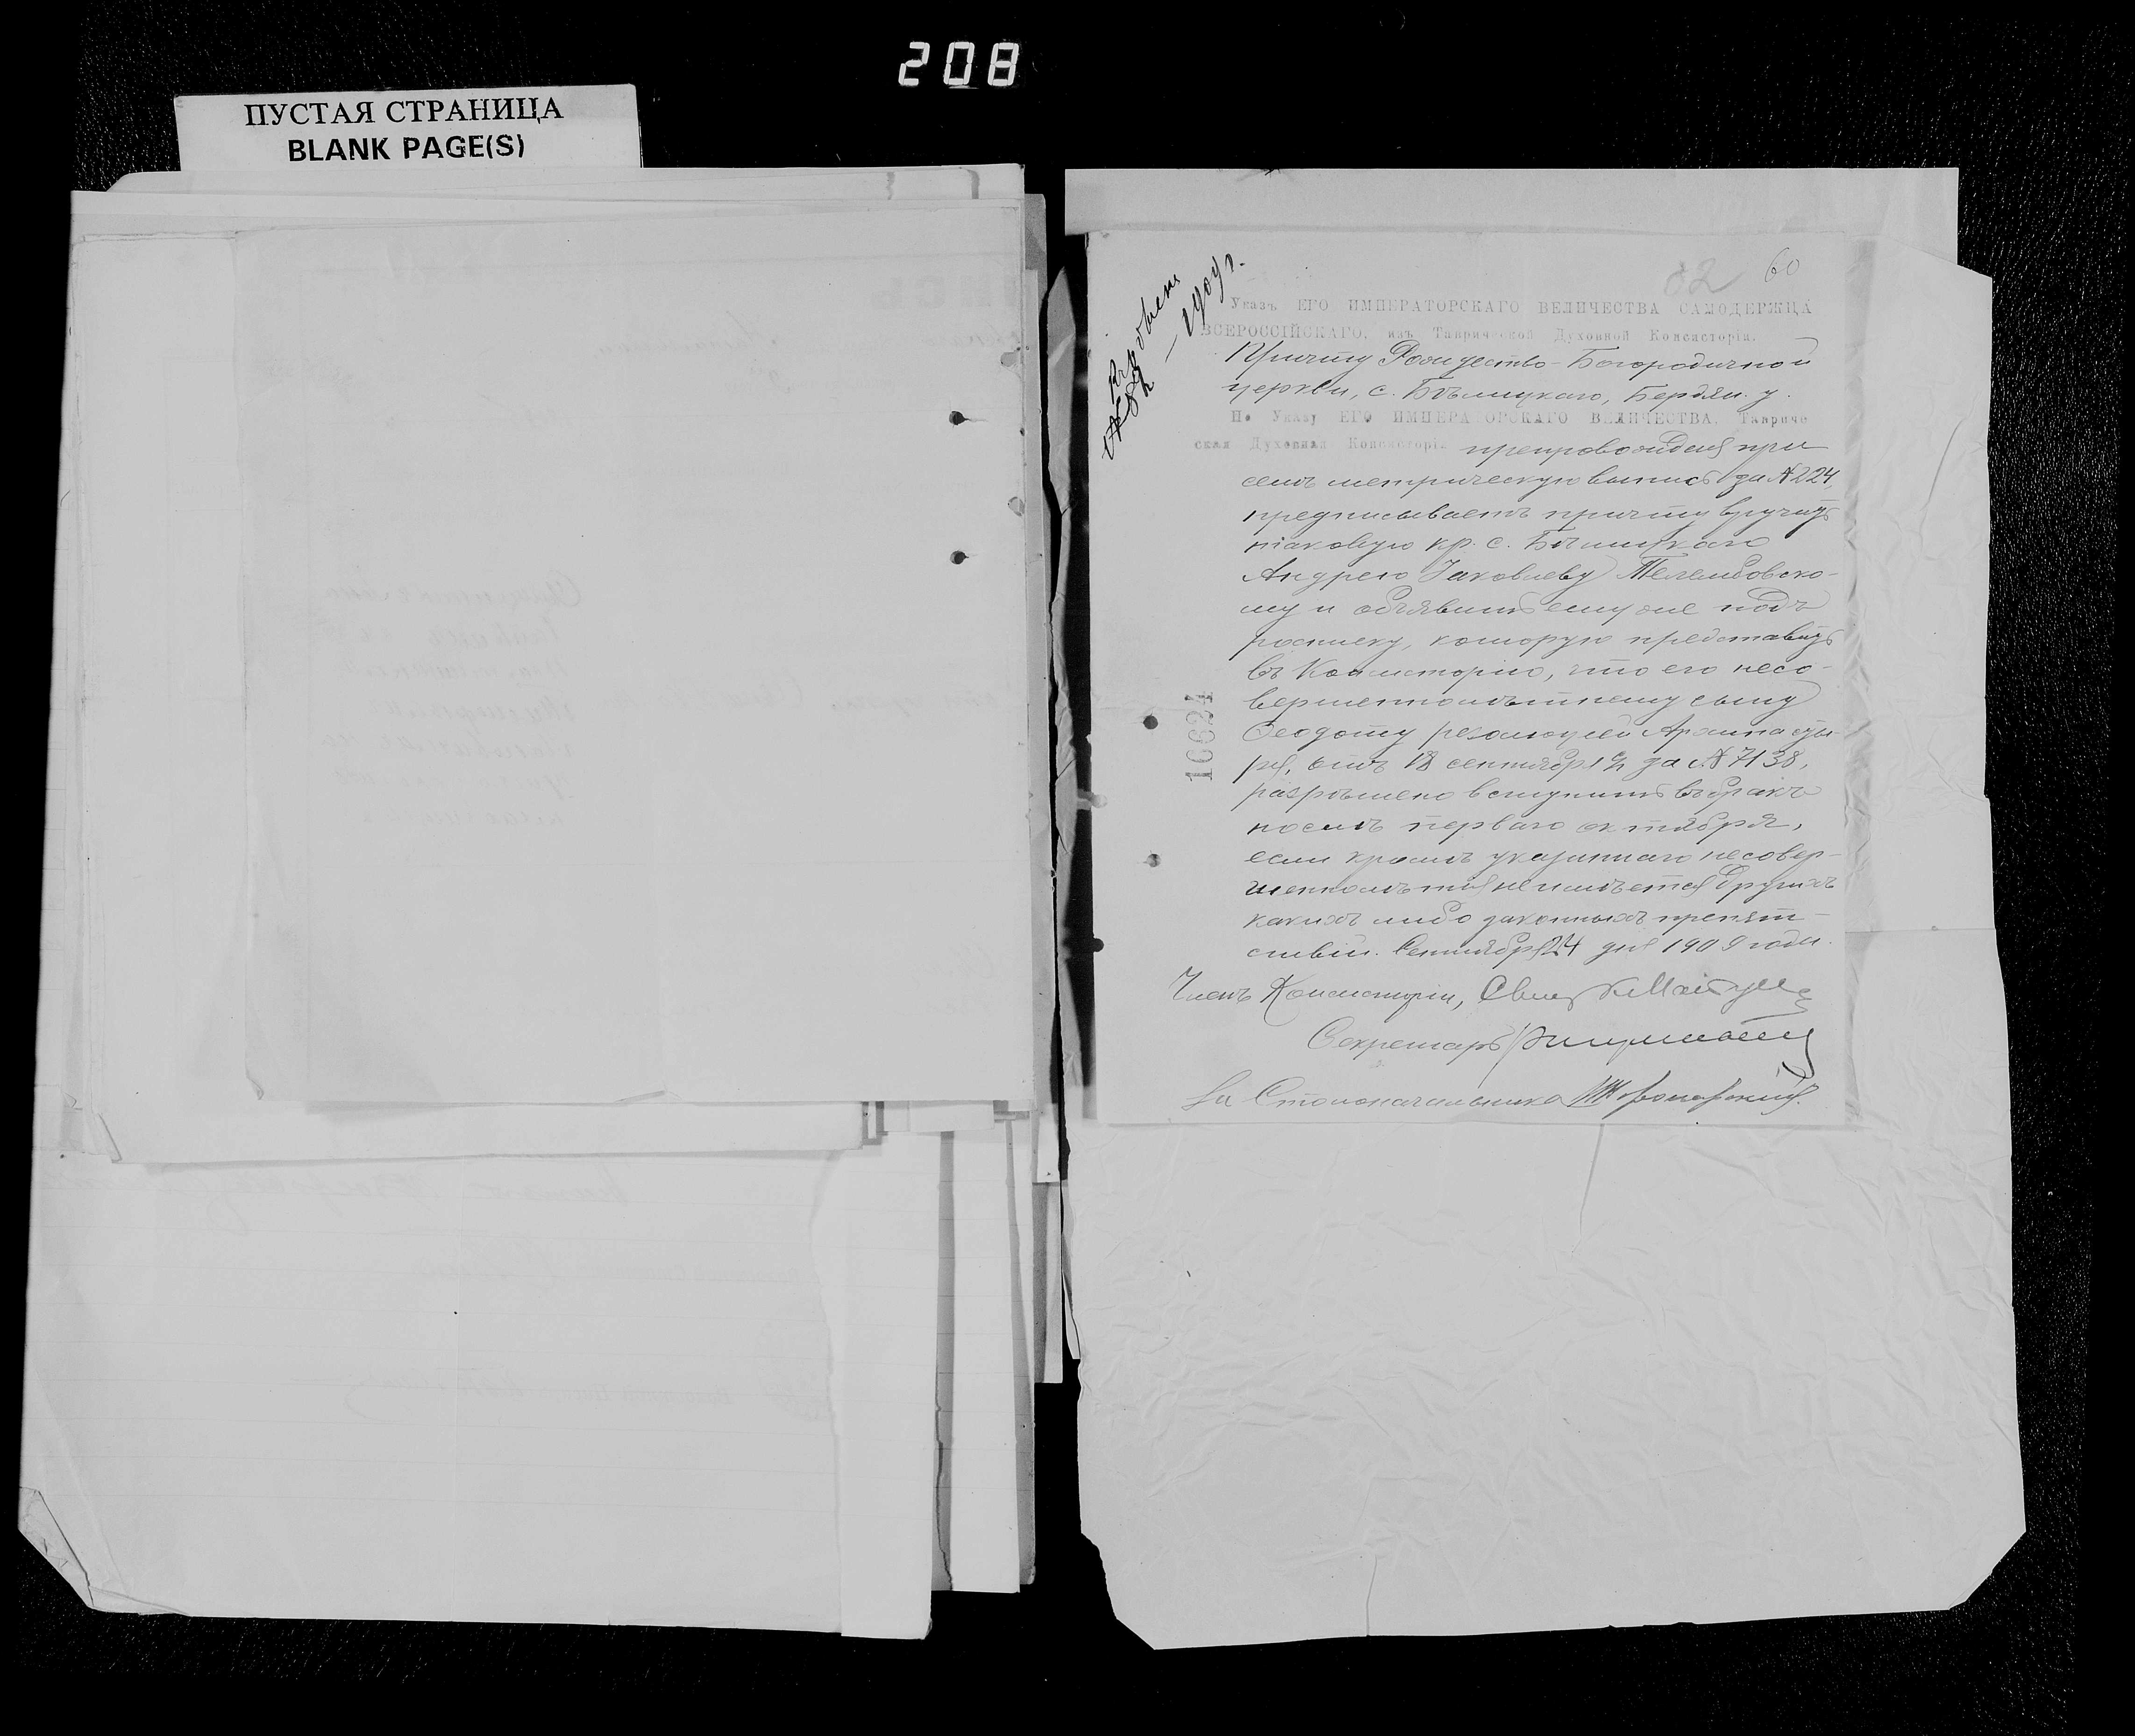 208
ПУСТАЯ СТРАНИЦА
BLANK PAGE(S)
60
82
№ 82 — 1909 г.
Указъ ЕГО ИМПЕРАТОРСКАГО ВЕЛИЧЕСТВА САМОДЕРЖЦА
ВСЕРОССІЙСКАГО, изъ Таврической Духовной Консисторіи.
Причту Рождество-Богородичной
церкви, с. Бѣлицкаго, Бердян. у.
По Указу ЕГО ИМПЕРАТОРСКАГО ВЕЛИЧЕСТВА, Тавриче
ская Духовная Консисторія препровождая при
семъ метрическую выпись за № 224,
предписываетъ причту вручить
таковую кр. с. Бѣлицкаго
Андрею Іаковлеву
му и объявить ему же подъ
росписку, которую представить
въ Консисторію, что его несо-
вершеннолѣтнему сыну
Ѳеодоту резолюціей Архипасты-
ря, отъ 18 сентября с/г за № 7138,
разрѣшено вступить въ бракъ
послѣ перваго октября,
если кромѣ указаннаго несовер-
шеннолѣтія не имѣется другихъ
какихъ либо законныхъ препят-
ствій. Сентября 24 дня 1909 года.
16624
Членъ Консисторіи, Свящ.
Секретарь
За Столоначальника